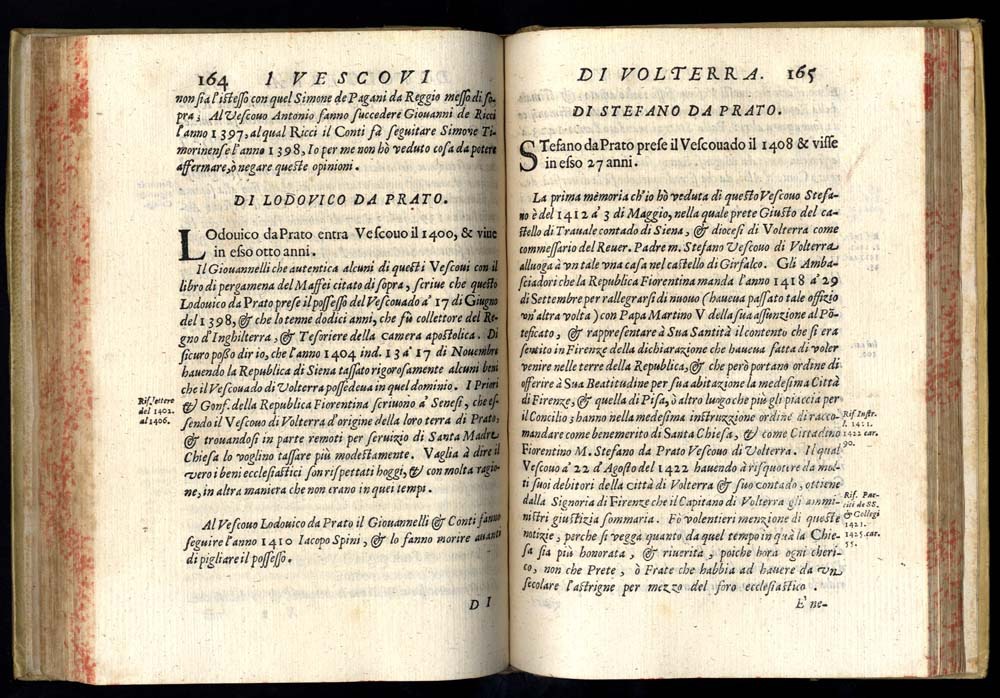 164 I VESCOVI
non sia l'istesso con quel Simone de Pagani da Reggio messo di so-
pra; Al Vescouo Antonio fanno succedere Giouanni de Ricci
l'anno 1397, al qual Ricci il Conti fà seguitare Simone Ti-
morinense l'anno 1398, Io per me non hò veduto cosa da potere
affermare, ò negare queste opinioni.
DI LODOVICO DA PRATO.
LOdouico da Prato entra Vescouo il 1400, & viue
in esso otto anni.
Il Giouannelli che autentica alcuni di questi Vescoui con il
libro di pergamena del Maffei citato di sopra, scriue che questo
Lodouico da Prato prese il possesso del Vescouado a' 17 di Giugno
del 1398, & che lo tenne dodici anni, che fù collettore del Re-
gno d'Inghilterra, & Tesoriere della Camera apostolica. Di
sicuro posso dir io, che l'anno 1404 ind. 13 a' 17 di Nouembre
hauendo la Republica di Siena tassato rigorosamente alcuni beni
che il Vescouado di Volterra possedeua in quel dominio. I Priori
& Gonf. della Republica Fiorentina scriuono a' Senesi, che es-
sendo il Vescouo di Volterra d'origine della loro terra di Prato,
& trouandosi in parte remoti per seruizio di Santa Madre
Chiesa lo voglino tassare più modestamente. Vaglia à dire il
vero i beni ecclesiastici son rispettati hoggi, & con molta ragio-
ne, in altra maniera che non erano in quei tempi.
Rif. lettere
del 1402.
al 1406.
Al Vescouo Lodouico da Prato il Giouannelli & Conti fanno
seguire l'anno 1410 Iacopo Spini, & lo fanno morire auanti
di pigliare il possesso.
D I
DI VOLTERRA. 165
DI STEFANO DA PRATO.
STefano da Prato prese il Vescouado il 1408 & visse
in esso 27 anni.
La prima memoria ch'io hò veduta di questo Vescouo Stefa-
no è del 1412 a' 3 di Maggio, nella quale prete Giusto del ca-
stello di Trauale contado di Siena, & diocesi di Volterra come
commessario del Reuer. Padre m. Stefano Vescouo di Volterra
alluoga à vn tale vna casa nel castello di Girfalco. Gli Amba-
sciadori che la Republica Fiorentina manda l'anno 1418 a' 29
di Settembre per rallegrarsi di nuouo (haueua passato tale offizio
vn'altra volta) con Papa Martino V della sua assunzione al Põ-
teficato, & rappresentare à Sua Santità il contento che si era
sentito in Firenze della dichiarazione che haueua fatta di voler
venire nelle terre della Republica, & che però portano ordine di
offerire à Sua Beatitudine per sua abitazione la medesima Città
di Firenze, & quella di Pisa, ò altro luogo che più gli piaccia per
il Concilio; hanno nella medesima instruzzione ordine di racco-
mandare come benemerito di Santa Chiesa, & come Cittadino
Fiorentino M. Stefano da Prato Vescouo di Volterra. Il qual
Vescouo a' 22 d'Agosto del 1422 hauendo à risquotere da mol-
ti suoi debitori della città di Volterra & suo contado, ottiene
dalla Signoria di Firenze che il Capitano di Volterra gli ammi-
nistri giustizia sommaria. Fò volentieri menzione di queste
notizie, perche si vegga quanto da quel tempo in quà la Chie-
sa sia più honorata, & riuerita, poiche hora ogni cheri-
co, non che Prete, ò Frate che habbia ad hauere da vn
secolare l'astrigne per mezzo del foro ecclesiastico.
Rif. Instr.
l. 1421.
1422 car.
90.
& Collegi
1421.
1425. car.
55.
E' ne-